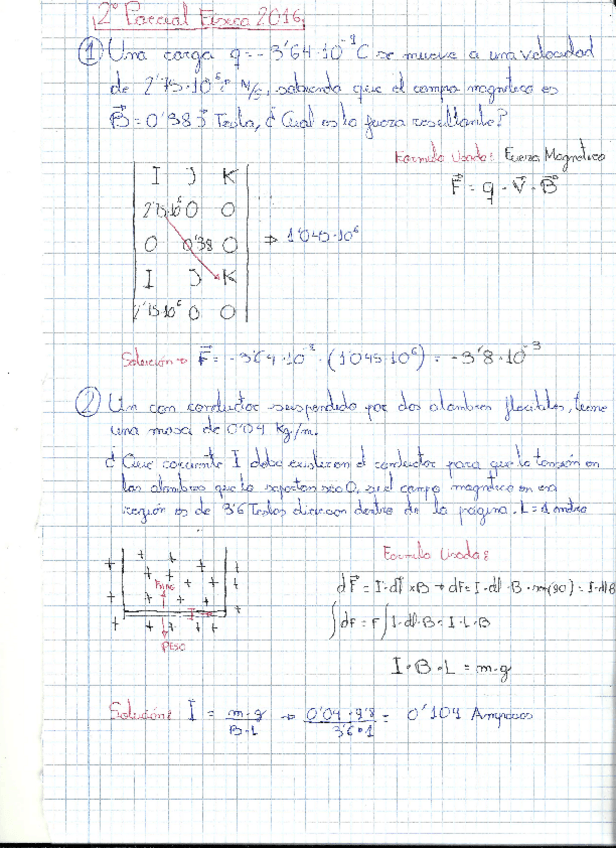 2º Parcial Física 2016
① Una carga q = - 3'64·10⁻⁹ C se mueve a una velocidad
de 2'75·10⁶ i m/s, sabiendo que el campo magnético es
B = 0'38 j Tesla, ¿Cual es la fuerza resultante?
Formula Usada: Fuerza Magnetica
F = q · V · B
I J K
2'75·10⁶ 0 0
0 0'38 0 ⇒ 1'045·10⁶
I J K
2'75·10⁶ 0 0
Solución → F = -3'64·10⁻⁹ · (1'045·10⁶) = -3'8·10⁻³
② Un con conductor suspendido por dos alambres flexibles, tiene
una masa de 0'04 Kg/m.
¿Que corriente I debe existir en el conductor para que la tensión en
los alambres que lo soportan sea 0, si el campo magnetico en esa
región es de 3'6 Teslas dirección dentro de la página. L = 1 metro
Formula Usada:
dF = I·dl × B → dF = I·dl·B·sen(90) = I·dl·B
∫dF = F ∫ I·dl·B = I·L·B
I·B·L = m·g
Fmag
I
PESO
Solución: I = m·g / B·L → 0'04·9'8 / 3'6·1 = 0'109 Amperios